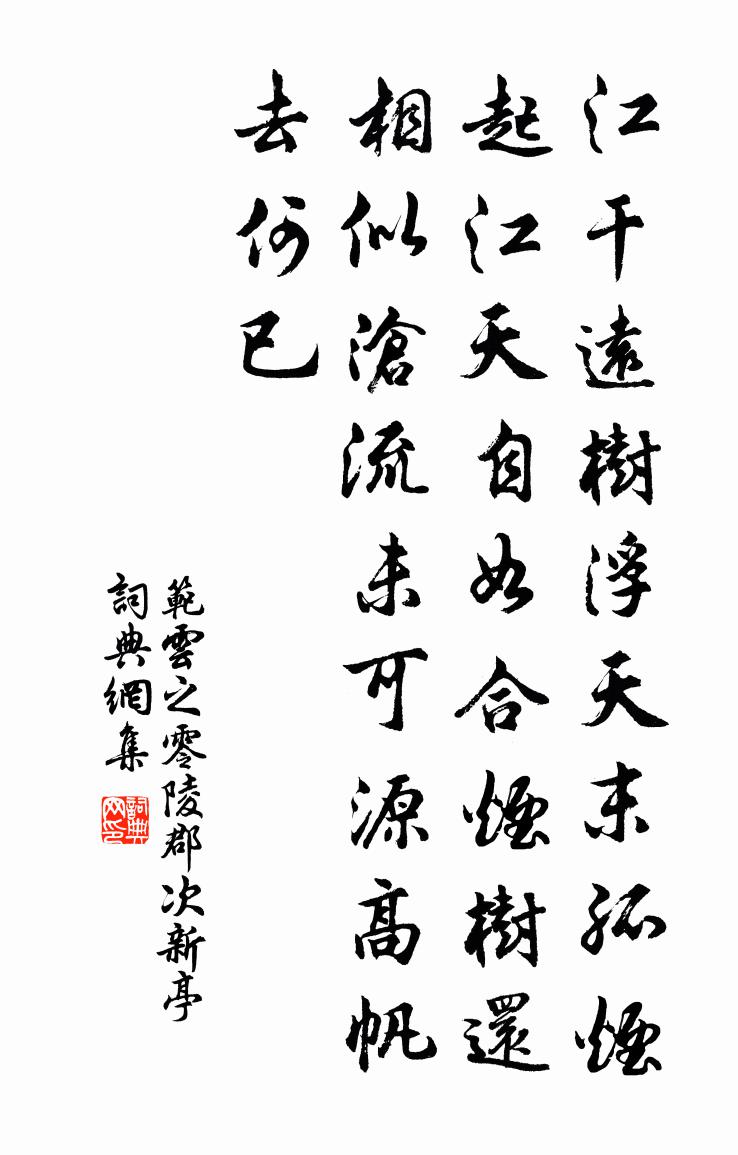 江干遠樹浮天末孤煙
起江天自如合煙樹還
相似滄流未可源高帆
去何已
範雲之零陵郡次新亭
詞典網集
詞典网印